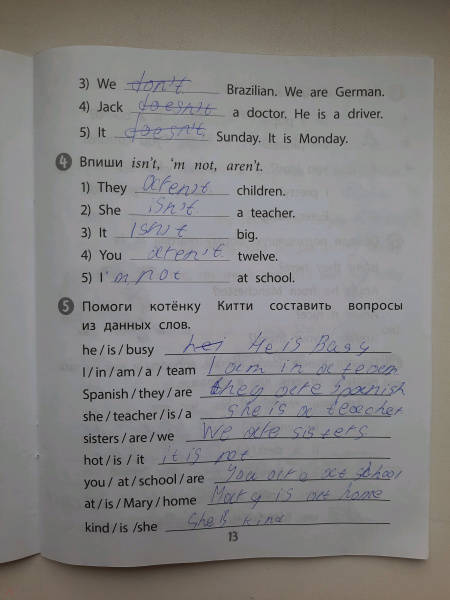 3) We don't Brazilian. We are German.
4) Jack doesn't a doctor. He is a driver.
5) It doesn't Sunday. It is Monday.
4 Впиши isn't, 'm not, aren't.
1) They aren't children.
2) She isn't a teacher.
3) It isn't big.
4) You aren't twelve.
5) I'm not at school.
5 Помоги котёнку Китти составить вопросы
из данных слов.
he / is / busy hei He is Busy
I / in / am / a / team I am in a team
Spanish / they / are they are Spanish
she / teacher / is / a she is a teacher
sisters / are / we We are sisters
hot / is / it it is not
you / at / school / are You are at school
at / is / Mary / home Mary is at home
kind / is /she She is kind
13